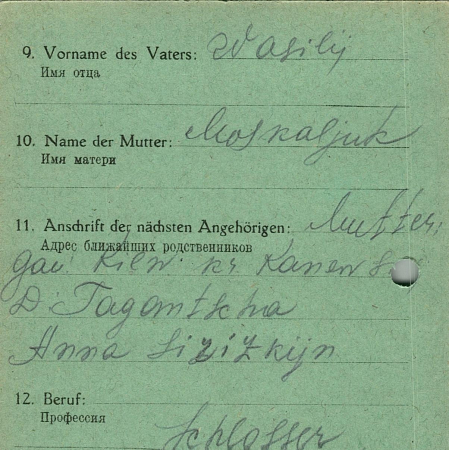 9. Vorname des Vaters: Wasilij
Имя отца
10. Name der Mutter: Moskaljuk
Имя матери
11. Anschrift der nächsten Angehörigen: Mutter:
Адрес ближайших родственников
gau. Kiew. kr Kanew
D. Tagantscha
Anna
12. Beruf:
Профессия
Schlosser